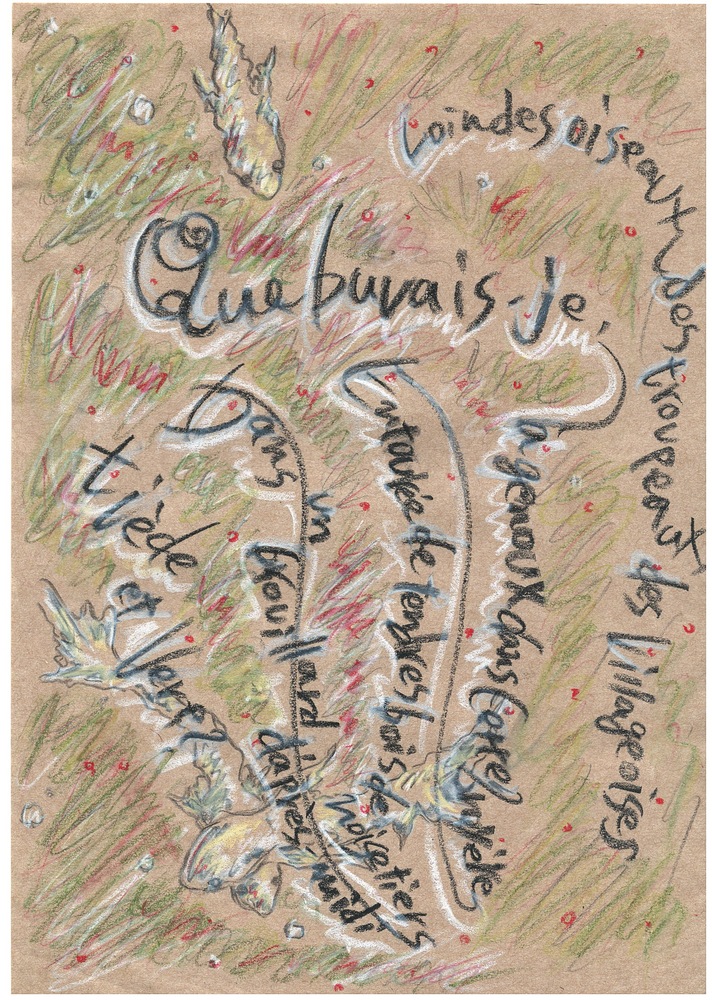 Loin des oiseaux, des troupeaux, des villageoises
Que buvais-je,
à genoux dans cette bruyère
Entourée de tendres bois de noisetiers
Dans un brouillard d'après-midi
tiède et vert?